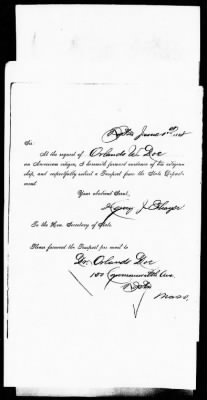 Boston June 1st 188
Sir
At the request of Orlando W. Doe
an American citizen, I herewith forward evidence of his citizen-
ship, and respectfully solicit a Passport from the State Depart-
ment.
Your obedient Servt.
Henry J.
To the Hon. Secretary of State.
Please forward the Passport per mail to
Dr. Orlando Doe
Commonwealth Ave
Boston
Mass.